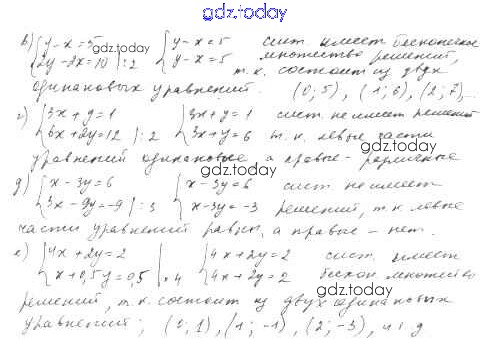 gdz.today
в) {y-x=5 2y-2x=10 |:2 {y-x=5 y-x=5 сист. имеет бесконечное
множество решений,
т.к. состоит из двух
одинаковых уравнений. (0;5), (1;6), (2;7),...
г) {3x+y=1 6x+2y=12 |:2 {3x+y=1 3x+y=6 сист. не имеет решений
т.к. левые части
gdz.today
уравнений одинаковые а правые - различные
gdz.today
д) {x-3y=6 3x-9y=-9 |:3 {x-3y=6 x-3y=-3 сист. не имеет
решений, т.к. левые
части уравнений равны, а правые - нет.
е) {4x+2y=2 x+0,5y=0,5 |·4 {4x+2y=2 4x+2y=2 сист. имеет
бескон. множество
gdz.today
решений, т.к. состоит из двух одинаковых
уравнений; (0;1), (1;-1), (2;-3), и т д
gdz.today